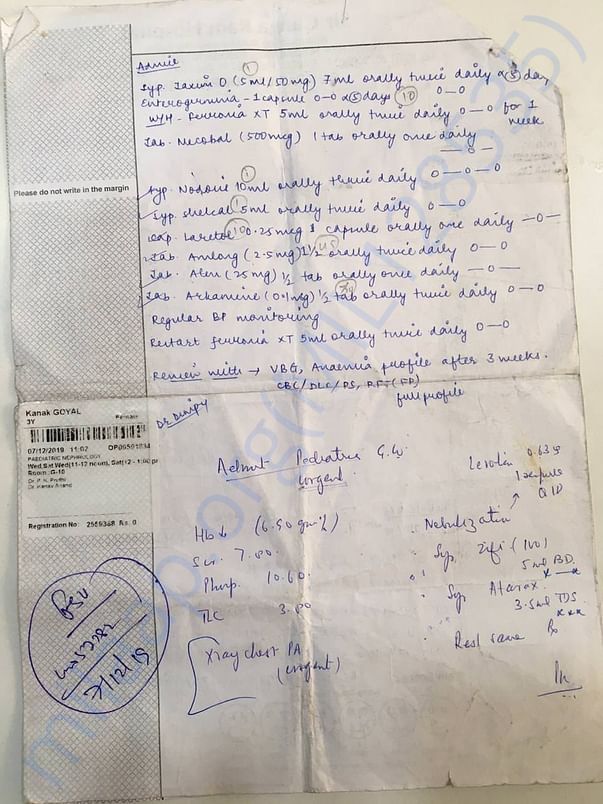 Advice
Syp. Taxim O (5ml/50mg) 7ml orally twice daily x 5 day
Enterogermina - 1 capsule 0-0 x 5 days 10 0-0
W/H - Ferronia XT 5ml orally twice daily 0-0 for 1 week
Tab. Necobal (500mcg) 1 tab orally one daily
-0-
Please do not write in the margin
Syp. Nodosis 10ml orally thrice daily 0-0-0
Syp. Shelcal 5ml orally twice daily 0-0
Cap. Laretol 0.25mcg 1 capsule orally one daily -0-
Tab. Amlong (2.5mg) 1 1/2 orally twice daily 0-0
Tab. Aten (25mg) 1/2 tab orally once daily -0-
Tab. Arkamine (0.1mg) 1/2 tab orally twice daily 0-0
Regular BP monitoring
Restart ferronia XT 5ml orally twice daily 0-0
Review with → VBG, Anaemia profile after 3 weeks.
CBC/DLC/PS, RFT (FP)
full profile
Kanak GOYAL
3Y Female
07/12/2019 11:02
PAEDIATRIC NEPHROLOGY
Wed,Sat Wed(11-12 noon), Sat(12 - 1:00 pm)
Room :G-10
Registration No: 2569368 Rs. 0
Admit Pediatrics G.W.
Urgent
Hb (6.50 gm%)
Scr. 7.80
Phosp. 10.60
TLC 3.80
Xray chest PA
(urgent)
Nebulization
Levolin 0.63
1 respule
QID
Syp Zifi (100)
5 ml BD
Syp Atarax
3.5 ml TDS
Rest same Rx
7/12/19